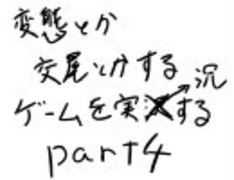 変態とか
交尾とかする
ゲームを実況する
part4